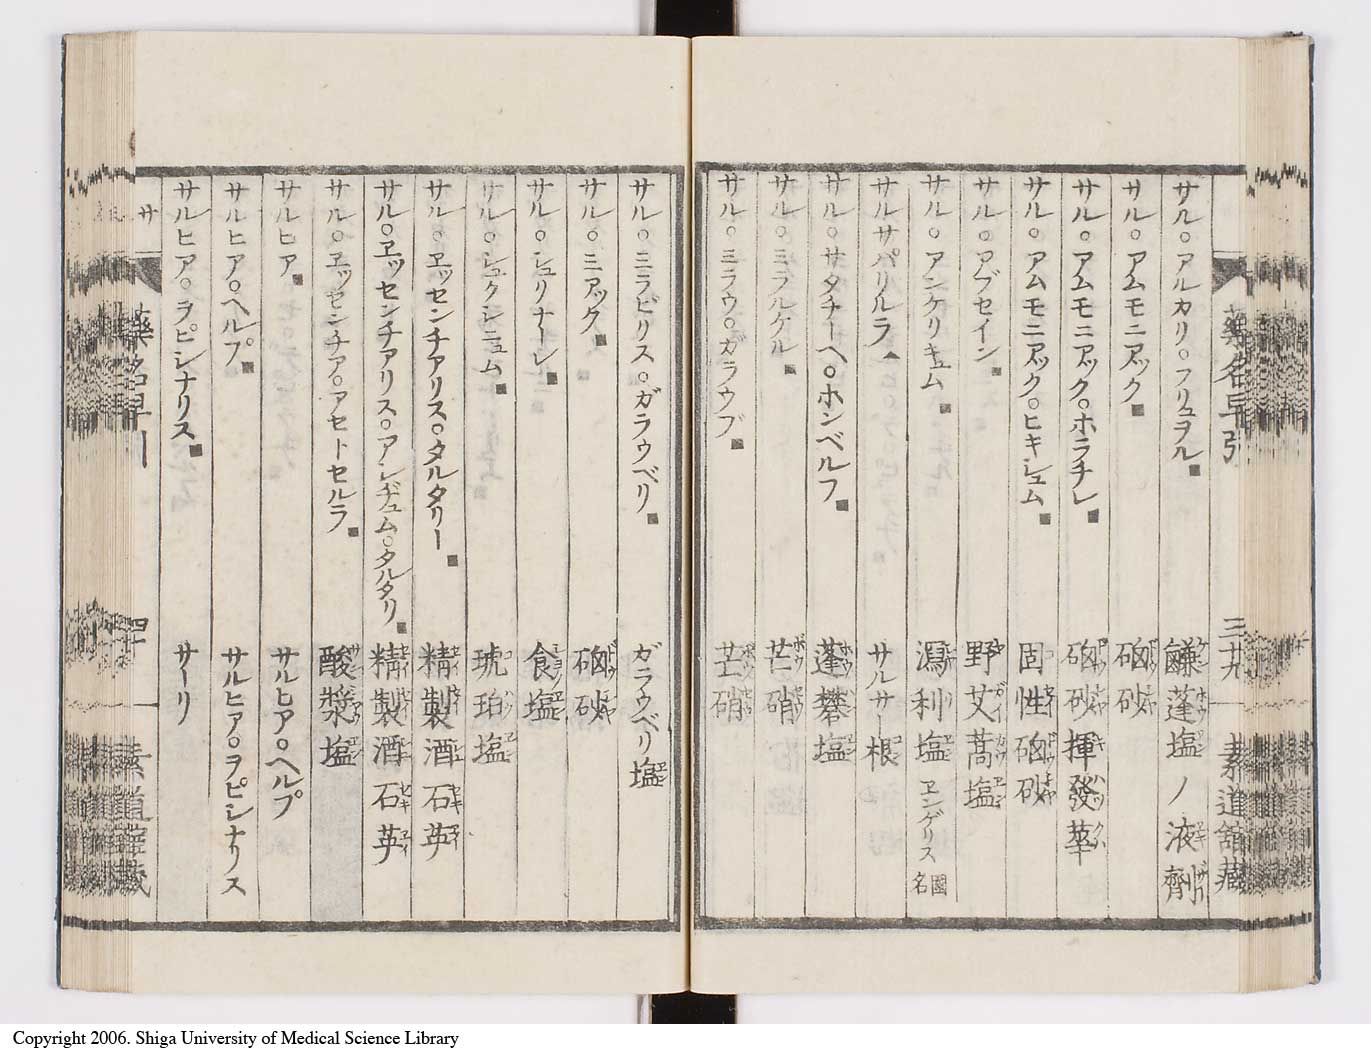 藥名早引
三十九
素道舘藏
サル○アルカリ○フリュヲル■ 鹻蓬塩ノ液劑
サル○アムモニアック■ 硇砂
サル○アムモニアック○ホラチレ■ 硇砂揮發華
サル○アムモニアック○ヒキシュム■ 固性硇砂
サル○アブセイン■ 野艾蒿塩
サル○アンケリキュム■ 瀉利塩 ヱンゲリス國名
サルサパリルラ サルサー根
サル○サタチーヘ○ホンベルフ■ 蓬礬塩
サル○ミラルケル■ 芒硝
サル○ミラウ○ガラウブ■ 芒硝
サル○ミラビリス○ガラウベリ■ ガラウベリ塩
サル○ミアック■ 硇砂
サル○シュリナーレ■ 食塩
サル○シュクシニュム■ 琥珀塩
サル○ヱッセンチアリス○タルタリー■ 精製酒石英
サル○ヱッセンチアリス○アシヂュム○タルタリ■ 精製酒石英
サル○ヱッセンチア○アセトセルラ■ 酸漿塩
サルヒア■ サルヒア○ヘルプ
サルヒア○ヘルプ■ サルヒア○ヲピシナリス
サルヒア○ラピシナリス■ サーリ
サ
藥名早引
四十
Copyright 2006. Shiga University of Medical Science Library